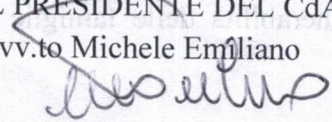 PRESIDENTE DEL CdA
vv.to Michele Emiliano